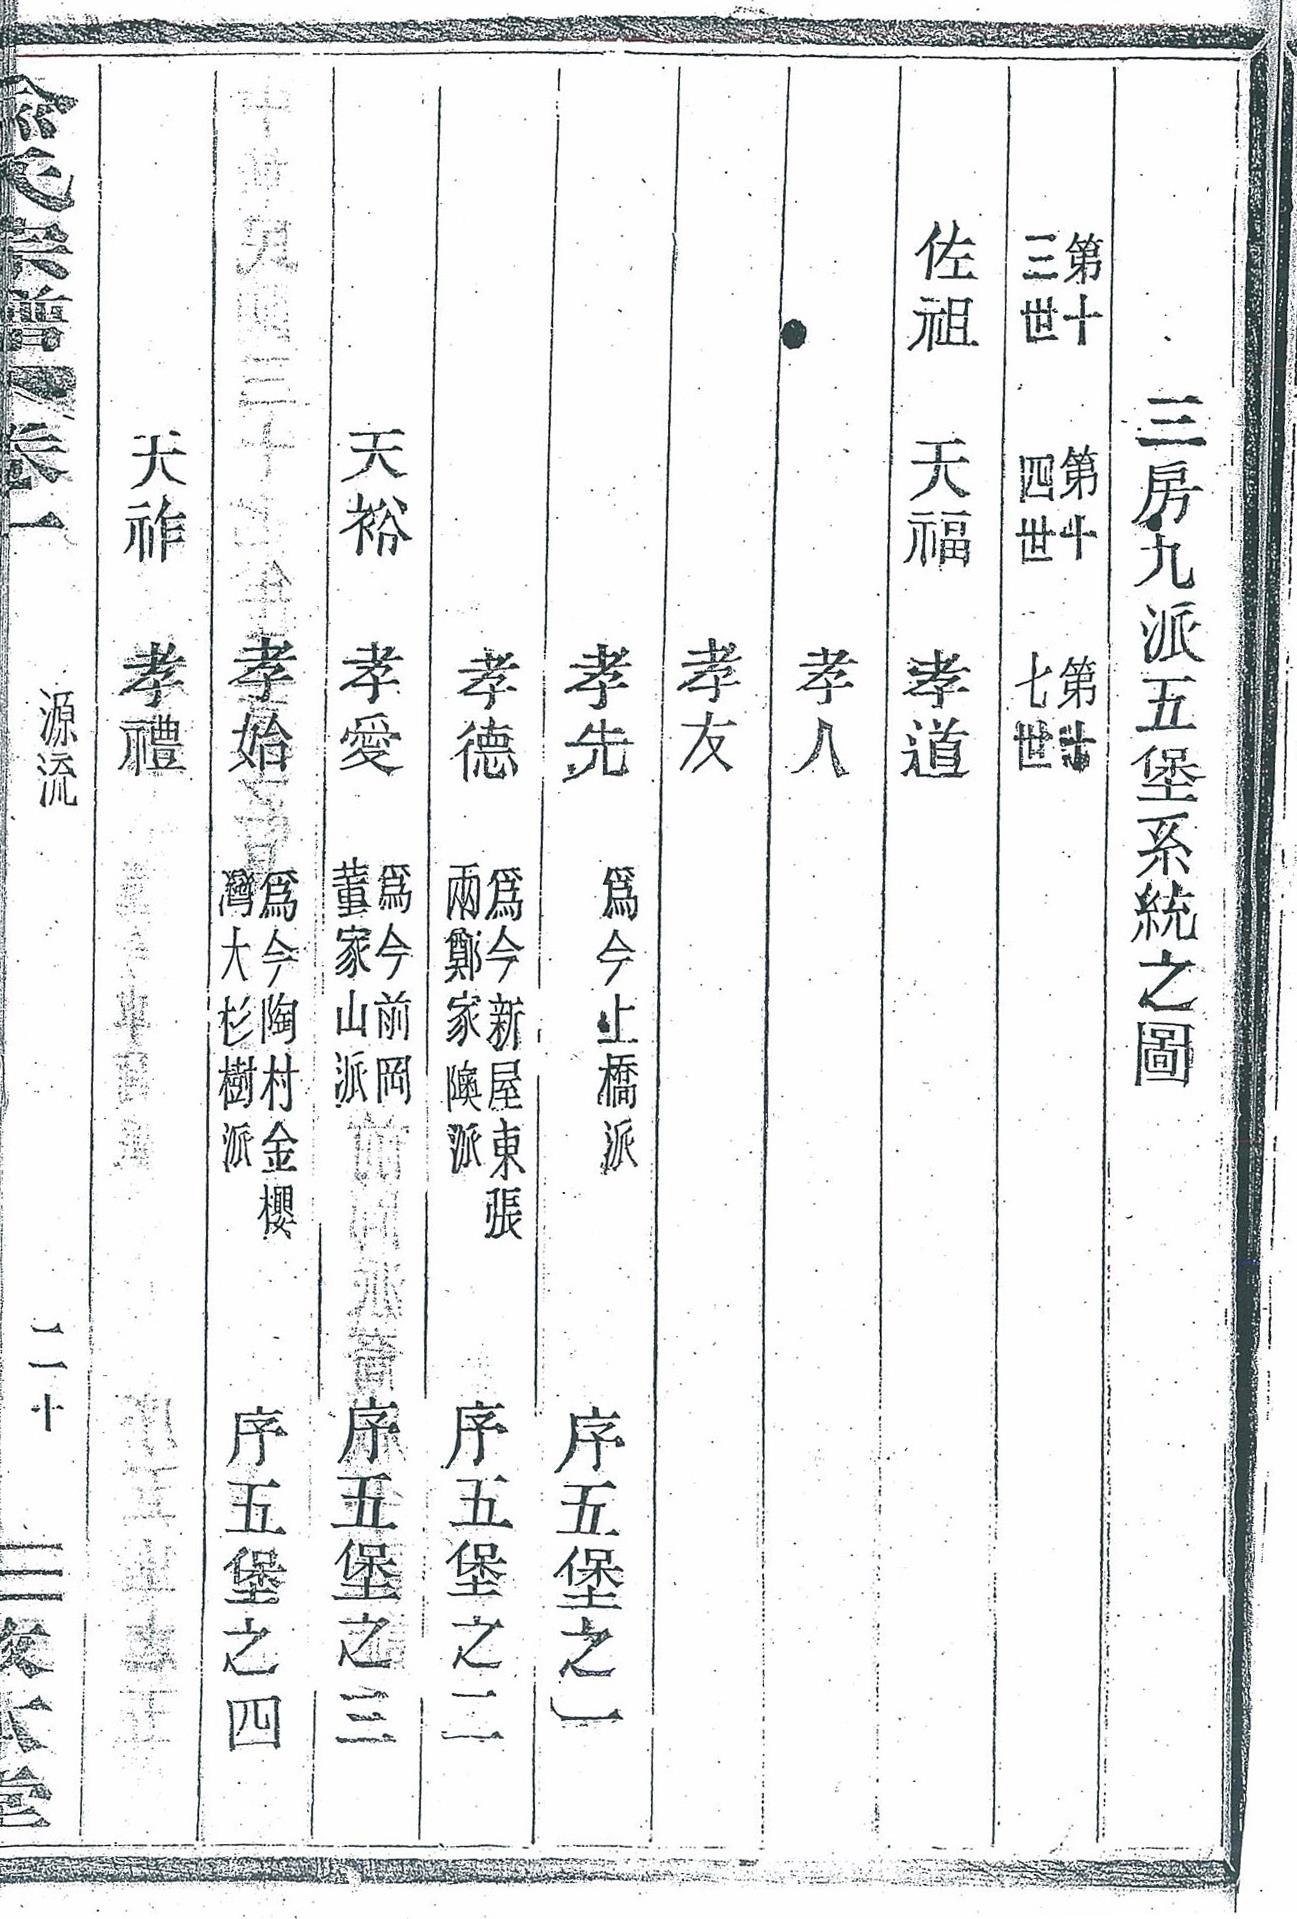 三房九派五堡系統之圖
第十三世 第十四世 第十七世
佐祖 天福 孝道
孝人
孝友
孝先 爲今上橋派 序五堡之一
孝德 爲今新屋東張兩鄭家隩派 序五堡之二
天裕 孝愛 爲今前岡董家山派 序五堡之三
孝始 爲今陶村金櫻灣大杉樹派 序五堡之四
天祚 孝禮
氏宗譜 卷一 源流 二十 本堂